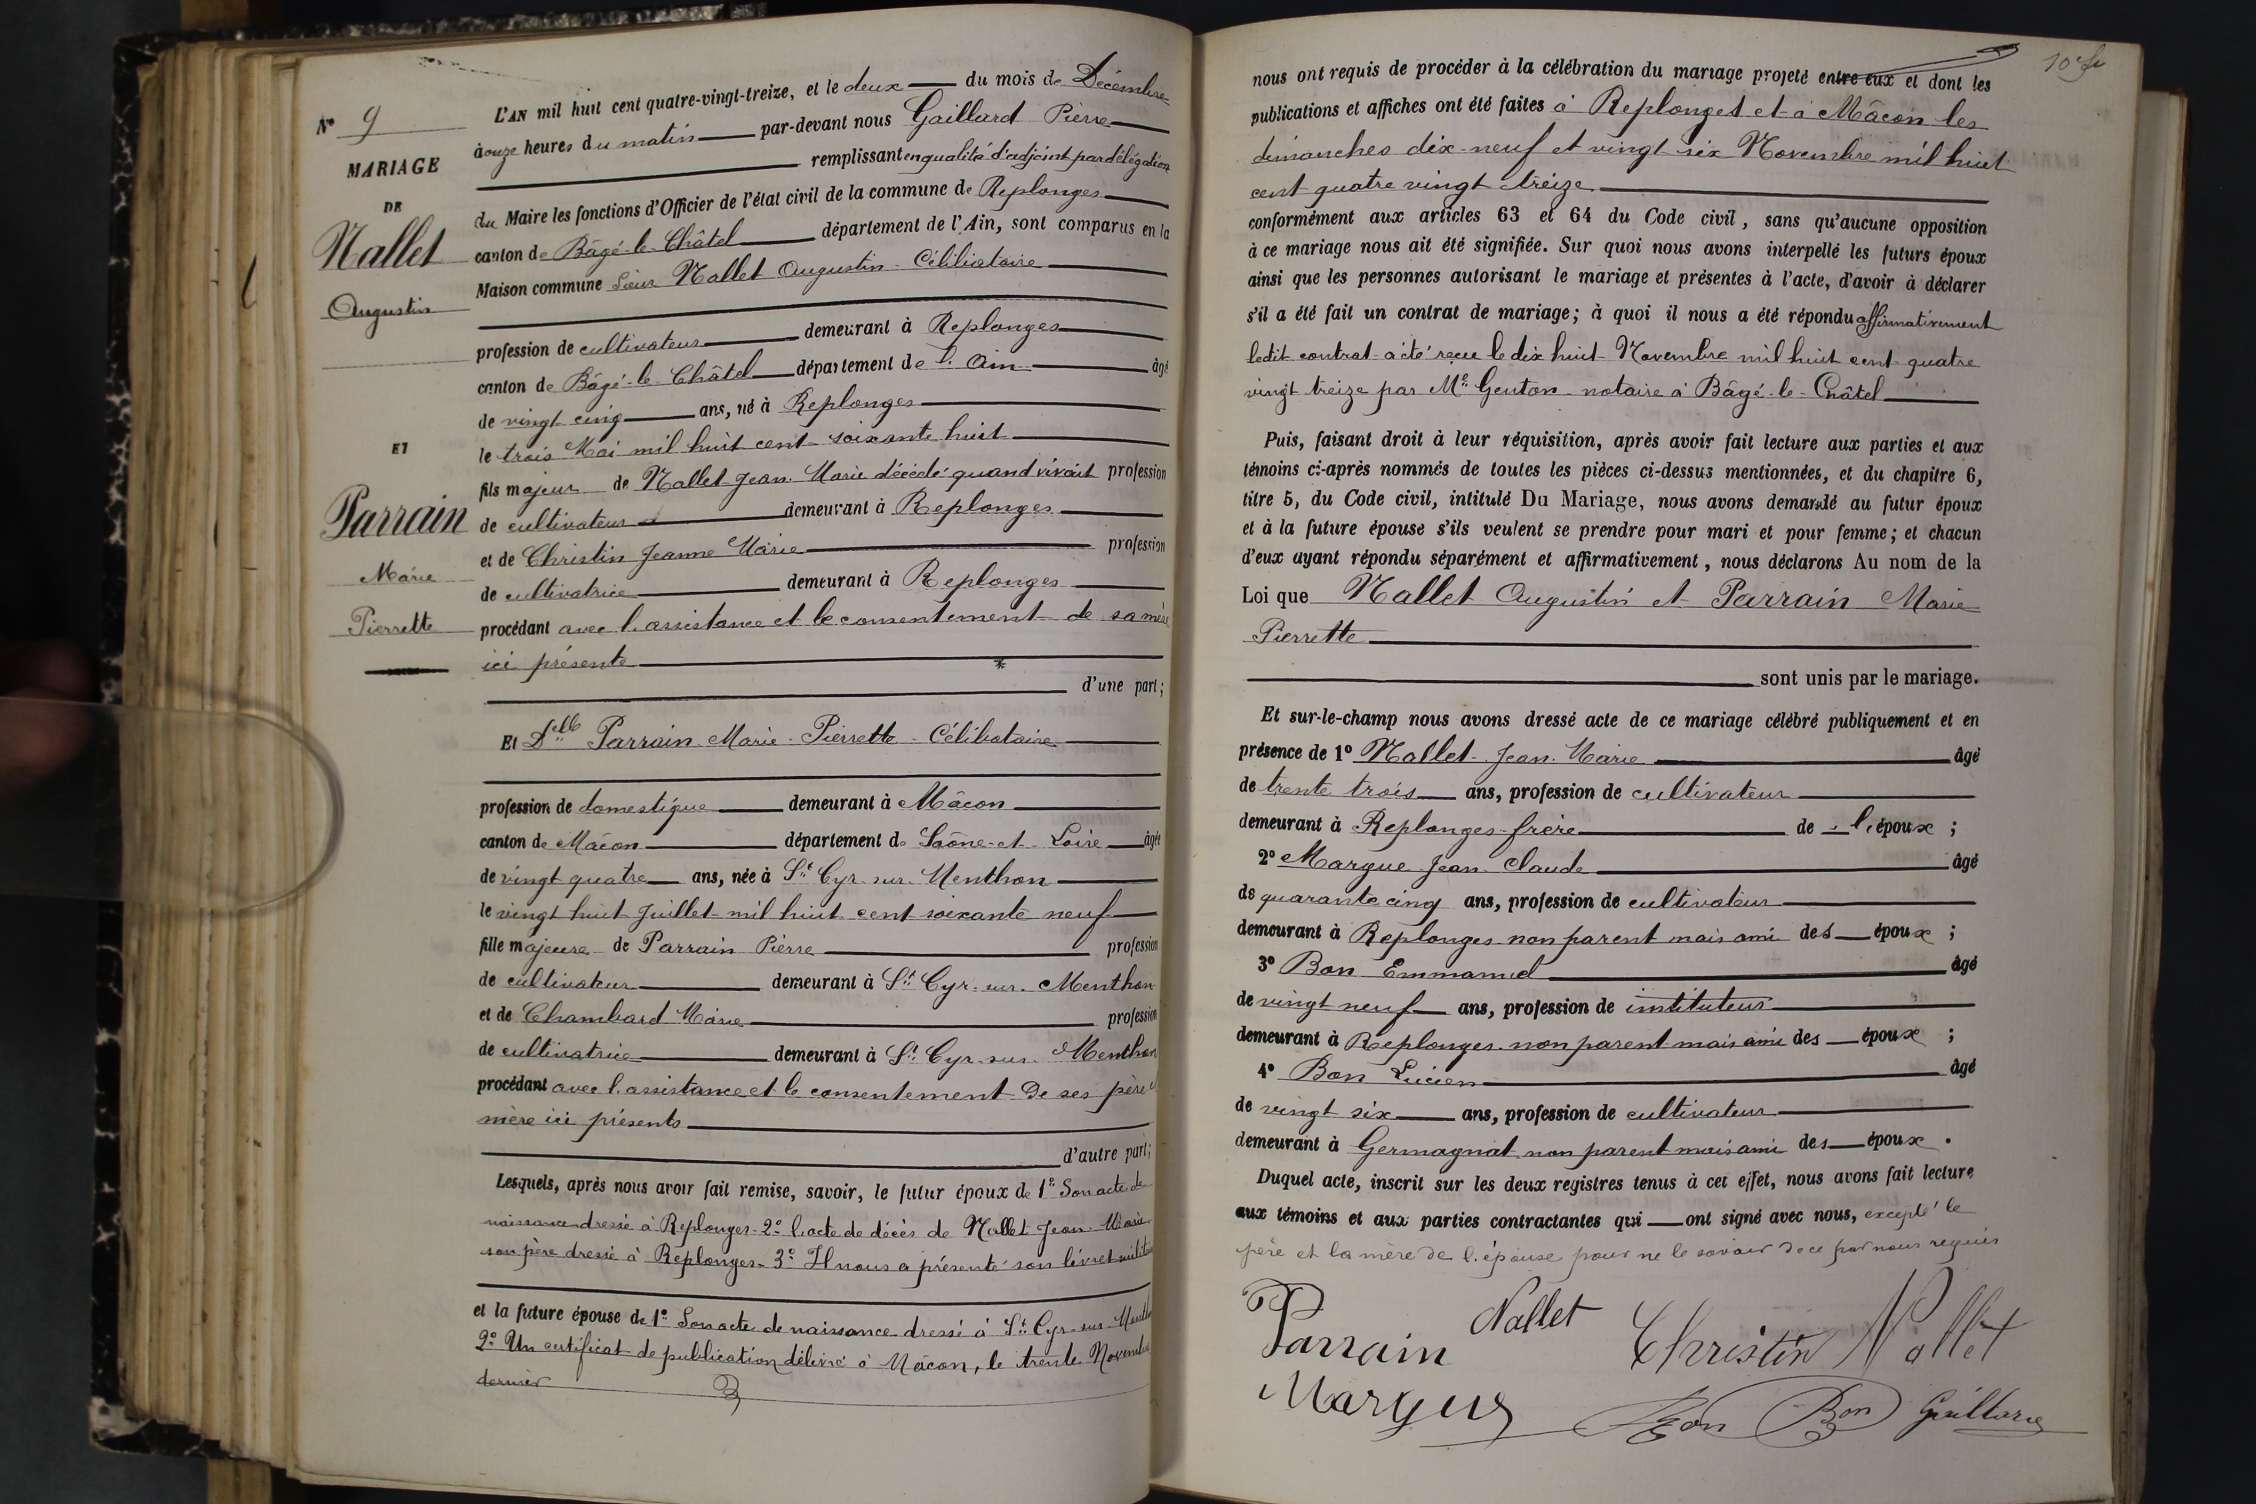 N° 9
MARIAGE
DE
Nallet
Augustin
ET
Parrain
Marie
Pierrette
L'AN mil huit cent quatre-vingt-treize, et le deux du mois de Décembre
à onze heures du matin par-devant nous Gaillard Pierre
remplissant en qualité d'adjoint par délégation
du Maire les fonctions d'Officier de l'état civil de la commune de Replonges
canton de Bâgé-le-Châtel département de l'Ain, sont comparus en la
Maison commune Sieur Nallet Augustin Célibataire
profession de cultivateur demeurant à Replonges
canton de Bâgé-le-Châtel département de l'Ain âgé
de vingt cinq ans, né à Replonges
le trois Mai mil huit cent soixante huit
fils majeur de Nallet Jean Marie décédé quand vivait profession
de cultivateur demeurant à Replonges
et de Christin Jeanne Marie profession
de cultivatrice demeurant à Replonges
procédant avec l'assistance et le consentement de sa mère
ici présente
d'une part;
Et Delle Parrain Marie Pierrette Célibataire
profession de domestique demeurant à Mâcon
canton de Mâcon département de Saône-et-Loire âgée
de vingt quatre ans, née à St Cyr-sur-Menthon
le vingt huit Juillet mil huit cent soixante neuf
fille majeure de Parrain Pierre profession
de cultivateur demeurant à St Cyr-sur-Menthon
et de Chambard Marie profession
de cultivatrice demeurant à St Cyr-sur-Menthon
procédant avec l'assistance et le consentement De ses père et
mère ici présents
d'autre part;
Lesquels, après nous avoir fait remise, savoir, le futur époux de 1° Son acte de
naissance dressé à Replonges 2° l'acte de décès de Nallet Jean Marie
son père dressé à Replonges 3° Il nous a présenté son livret militaire
et la future épouse de 1° Son acte de naissance dressé à St Cyr-sur-Menthon
2° Un certificat de publication délivré à Mâcon, le trente Novembre
dernier
nous ont requis de procéder à la célébration du mariage projeté entre eux et dont les
publications et affiches ont été faites à Replonges et à Mâcon les
dimanches dix-neuf et vingt six Novembre mil huit
cent quatre vingt treize
conformément aux articles 63 et 64 du Code civil, sans qu'aucune opposition
à ce mariage nous ait été signifiée. Sur quoi nous avons interpellé les futurs époux
ainsi que les personnes autorisant le mariage et présentes à l'acte, d'avoir à déclarer
s'il a été fait un contrat de mariage; à quoi il nous a été répondu affirmativement
ledit contrat a été reçu le dix huit Novembre mil huit cent quatre
vingt treize par Me Genton notaire à Bâgé-le-Châtel
Puis, faisant droit à leur réquisition, après avoir fait lecture aux parties et aux
témoins ci-après nommés de toutes les pièces ci-dessus mentionnées, et du chapitre 6,
titre 5, du Code civil, intitulé Du Mariage, nous avons demandé au futur époux
et à la future épouse s'ils veulent se prendre pour mari et pour femme; et chacun
d'eux ayant répondu séparément et affirmativement, nous déclarons Au nom de la
Loi que Nallet Augustin et Parrain Marie
Pierrette
sont unis par le mariage.
Et sur-le-champ nous avons dressé acte de ce mariage célébré publiquement et en
présence de 1° Nallet Jean Marie âgé
de trente trois ans, profession de cultivateur
demeurant à Replonges frère de l'époux;
2° Margue Jean Claude âgé
de quarante cinq ans, profession de cultivateur
demeurant à Replonges non parent mais ami des époux;
3° Bon Emmanuel âgé
de vingt neuf ans, profession de instituteur
demeurant à Replonges non parent mais ami des époux;
4° Bon Lucien âgé
de vingt six ans, profession de cultivateur
demeurant à Germagnat non parent mais ami des époux.
Duquel acte, inscrit sur les deux registres tenus à cet effet, nous avons fait lecture
aux témoins et aux parties contractantes qui ont signé avec nous, excepté le
père et la mère de l'épouse pour ne le savoir de ce par nous requis
Parrain Nallet Christin Nallet
Margue Bon Gaillard